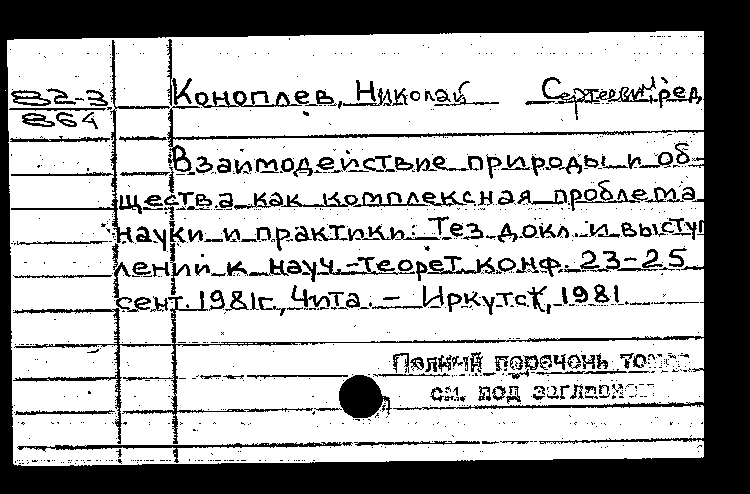 82-3
864
Коноплев, Николай Сергеевич, ред.
Взаимодействие природы и об-
щества как комплексная проблема
науки и практики: Тез. докл. и высту
лений к науч.-теорет. конф. 23-25
сент. 1981г., Чита. - Иркутск, 1981
Полный перечень томов
см. под заглавием